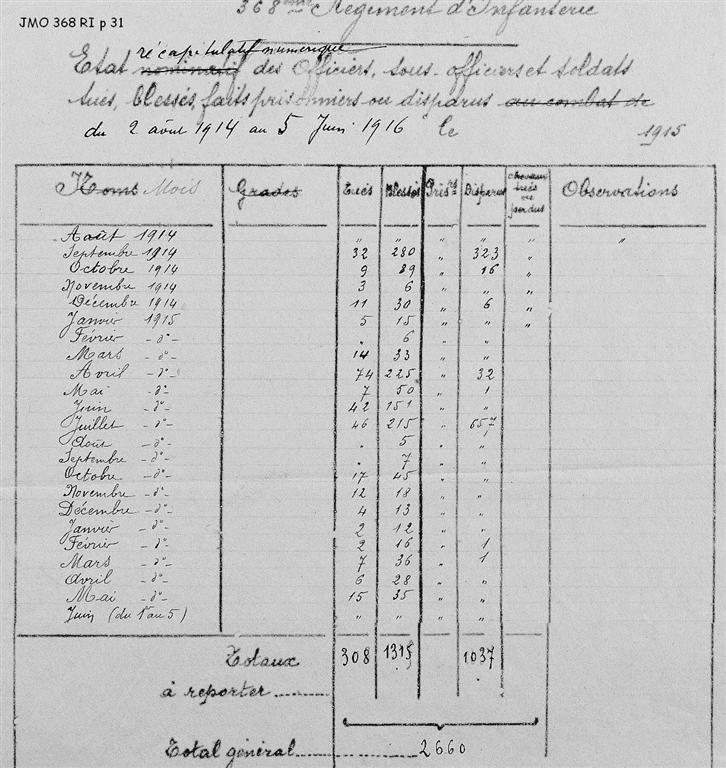 JMO 368 RI p 31
368ème Régiment d'Infanterie
récapitulatif numérique
Etat nominatif des Officiers, sous-officiers et soldats
tués, blessés, faits prisonniers ou disparus au combat de
du 2 août 1914 au 5 Juin 1916 le 1915
Noms Mois Grades Tués Blessés Pris.rs Disparus chevaux tués ou perdus Observations
Août 1914 " " " " " "
Septembre 1914 32 280 " 323 "
Octobre 1914 9 89 " 16 "
Novembre 1914 3 6 " " "
Décembre 1914 11 30 " 6 "
Janvier 1915 5 15 " " "
Février -d°- " 6 " "
Mars -d°- 14 33 " "
Avril -d°- 74 225 " 32
Mai d°- 7 50 " 1
Juin -d°- 42 151 " "
Juillet -d°- 46 215 " 657
Août -d°- " 5 " "
Septembre -d°- " 7 " "
Octobre -d°- 17 45 " "
Novembre -d°- 12 18 " "
Décembre -d°- 4 13 " "
Janvier -d°- 2 12 " "
Février -d°- 2 16 " 1
Mars -d°- 7 36 " 1
Avril -d°- 6 28 " "
Mai -d°- 15 35 " "
Juin (du 1er au 5) " " " "
Totaux 308 1315 1037
à reporter
Total général 2660